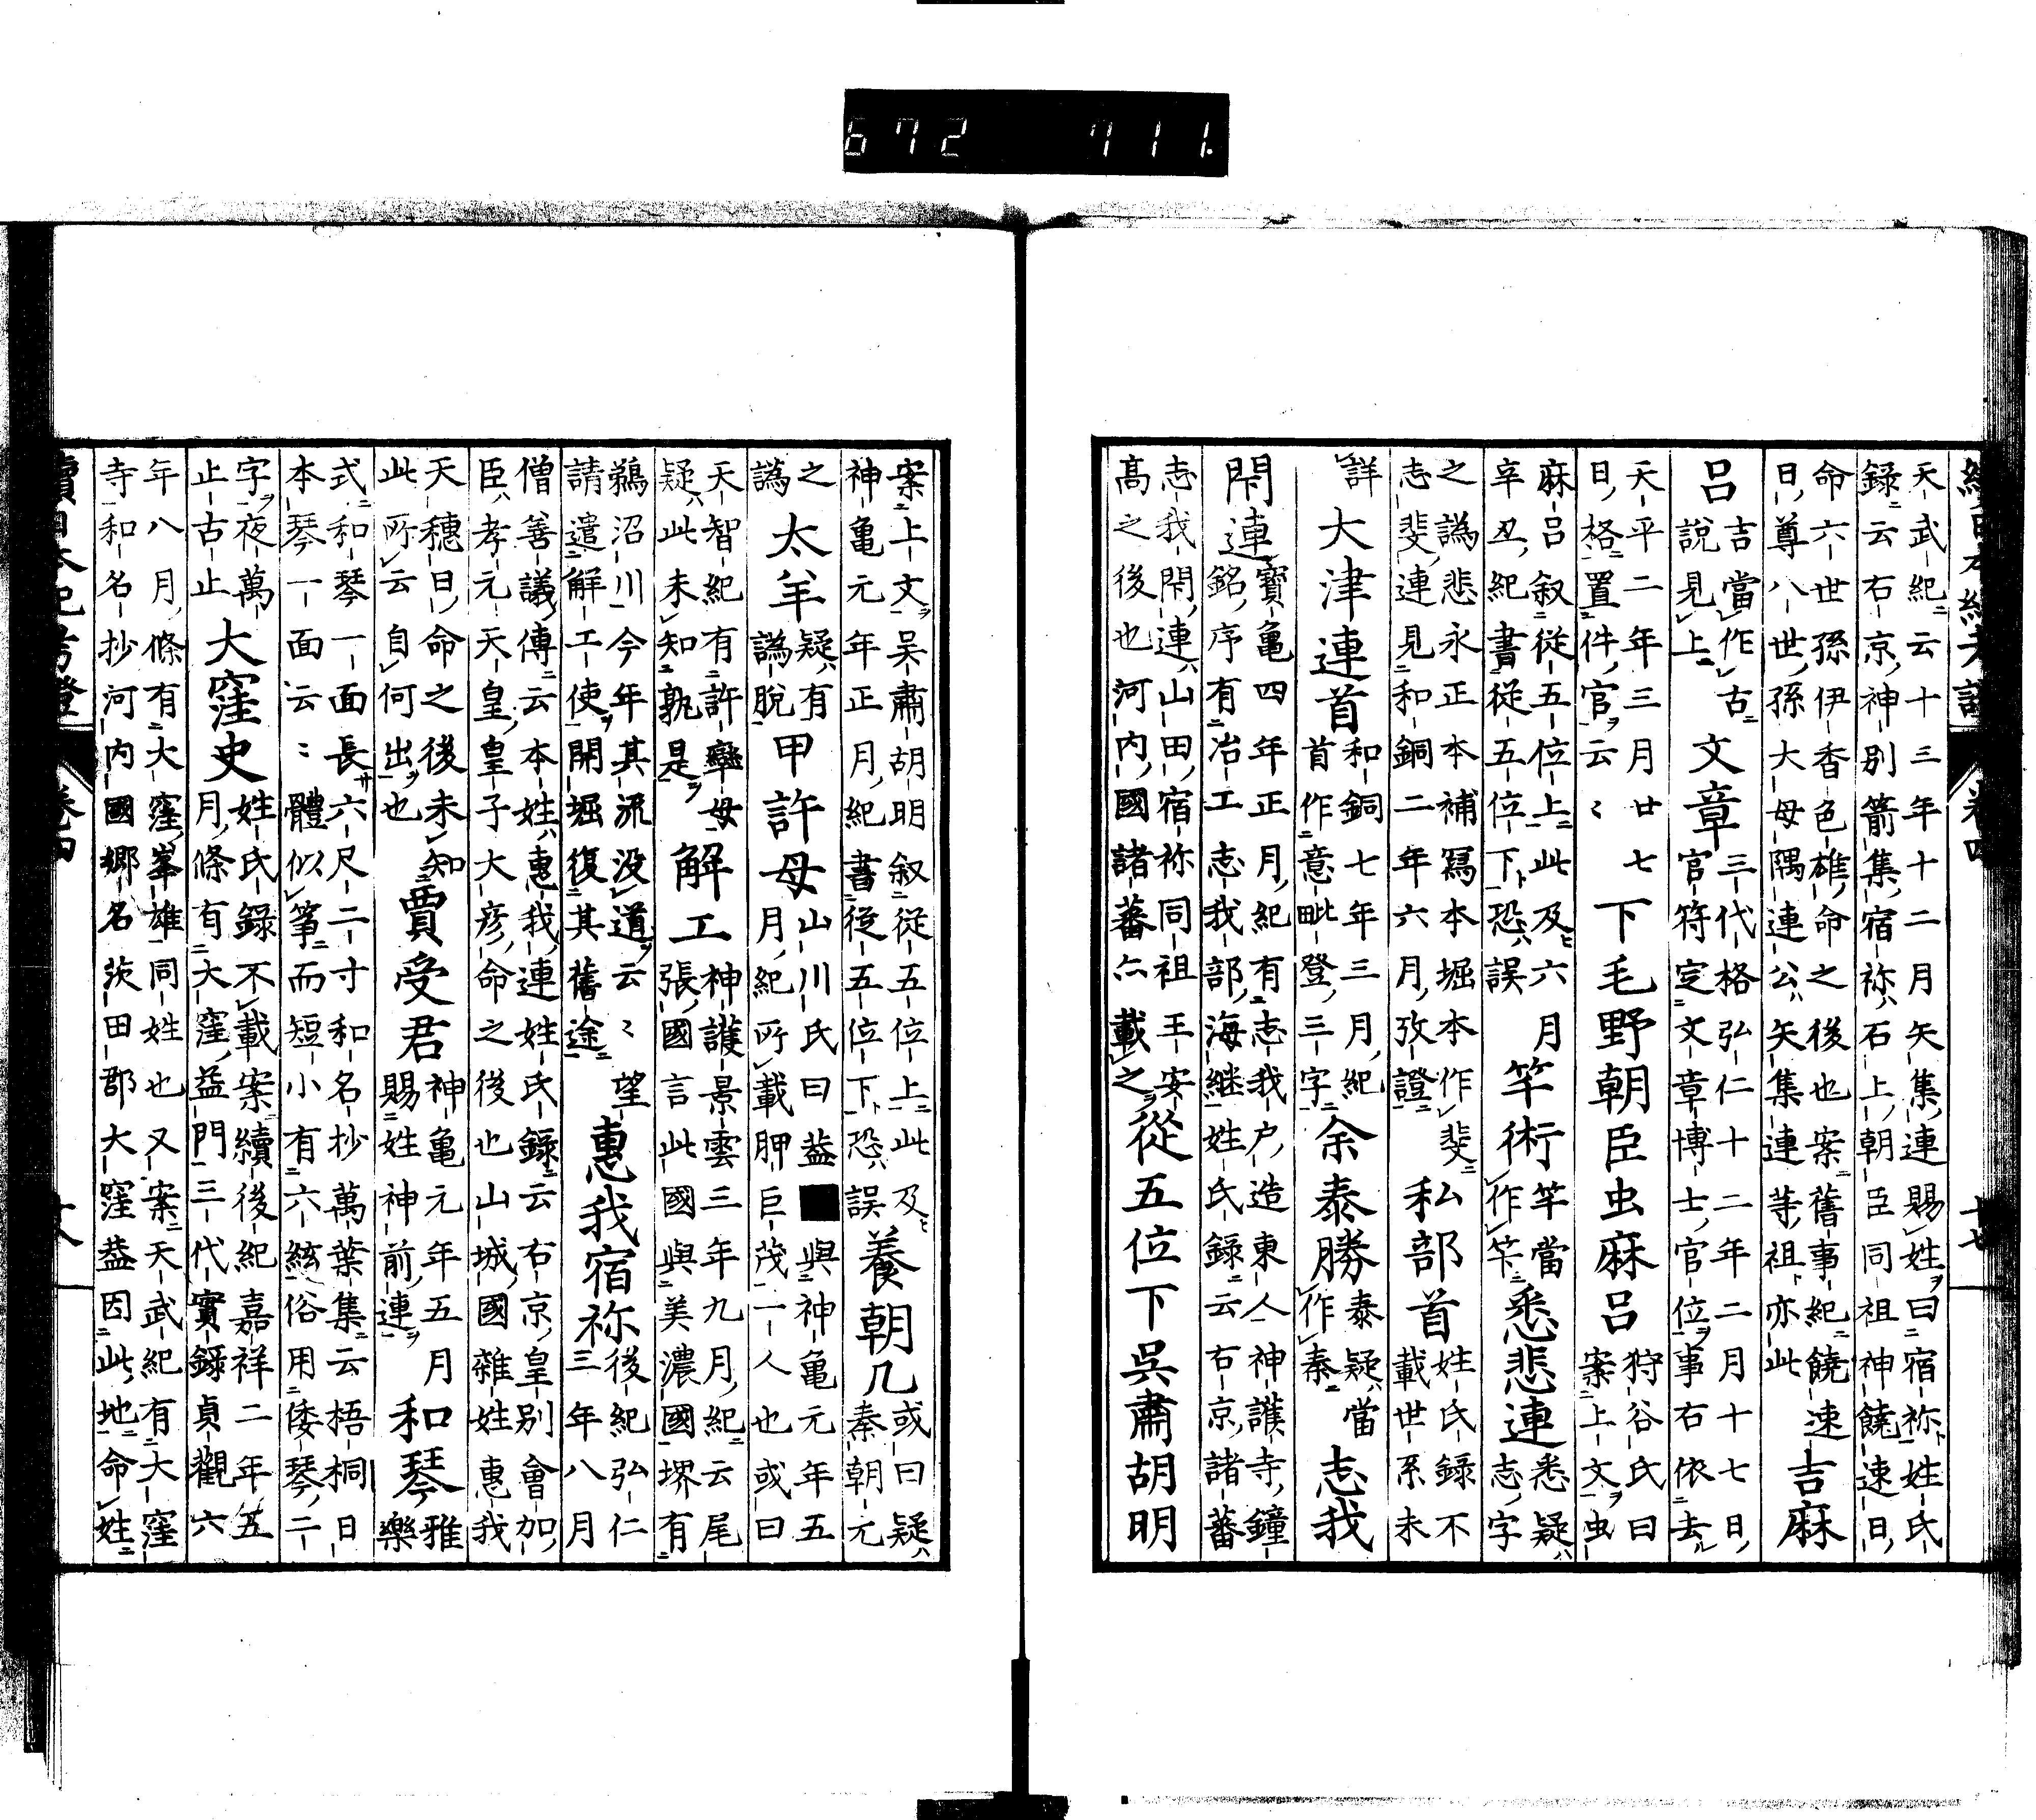 672 711.
天武紀云十三年十二月矢集連賜姓曰宿祢姓氏
録云右京神別箭集宿祢石上朝臣同祖神饒速日
命六世孫伊香色雄命之後也案舊事紀饒速
日尊八世孫大母隅連公矢集連等祖亦此
吉麻
呂
吉當作古
說見上
文章
三代格弘仁十二年二月十七日
官符定文章博士官位事右依去
天平二年三月廿七
日格置件官云〻
下毛野朝臣虫麻呂
狩谷氏曰
案上文虫
麻呂叙從五位上此及六月
辛丑紀書從五位下恐誤
竿術
竿當
作竿
悉悲連
悉疑
志字
之譌悲永正本補寫本堀本作斐
志斐連見和銅二年六月攷證
私部首
姓氏録不
載世系未
詳
大津連首
和銅七年三月紀
首作意毗登三字
余泰勝
泰疑當
作秦
志我
閇連
寶龜四年正月紀有志我戸造東人神護寺鐘
銘序有冶工志我部海継姓氏録云右京諸蕃
志我閇連山田宿祢同祖王安
高之後也河内國諸蕃亦載之
從五位下吳肅胡明
案上文吴肅胡明叙從五位上此及
神亀元年正月紀書從五位下恐誤
養朝几
或曰疑
秦朝元
之
譌
太羊
疑有
譌脱
甲許母
山川氏曰益■與神亀元年五
月紀所載胛巨茂一人也或曰
天智紀有許率母
疑此未知孰是
解工
神護景雲三年九月紀云尾
張國言此國與美濃國堺有
鵜沼川今年其流没道云〻望
請遣解工使開堀復其舊途
惠我宿祢
後紀弘仁
三年八月
僧善議傳云本姓惠我連姓氏録云右京皇別會加
臣孝元天皇皇子大彦命之後也山城國雜姓惠我
天穗日命之後未知
此所云自何出也
賈受君
神亀元年五月
賜姓神前連
和琴
雅
樂
式和琴一面長六尺二寸和名抄萬葉集云梧桐日
本琴一面云〻體似箏而短小有六絃俗用倭琴二
字夜萬
止古止
大窪史
姓氏録不載案續後紀嘉祥二年五
月條有大窪益門三代實録貞觀六
年八月條有大窪峯雄同姓也又案天武紀有大窪
寺和名抄河内國郷名茨田郡大窪葢因此地命姓